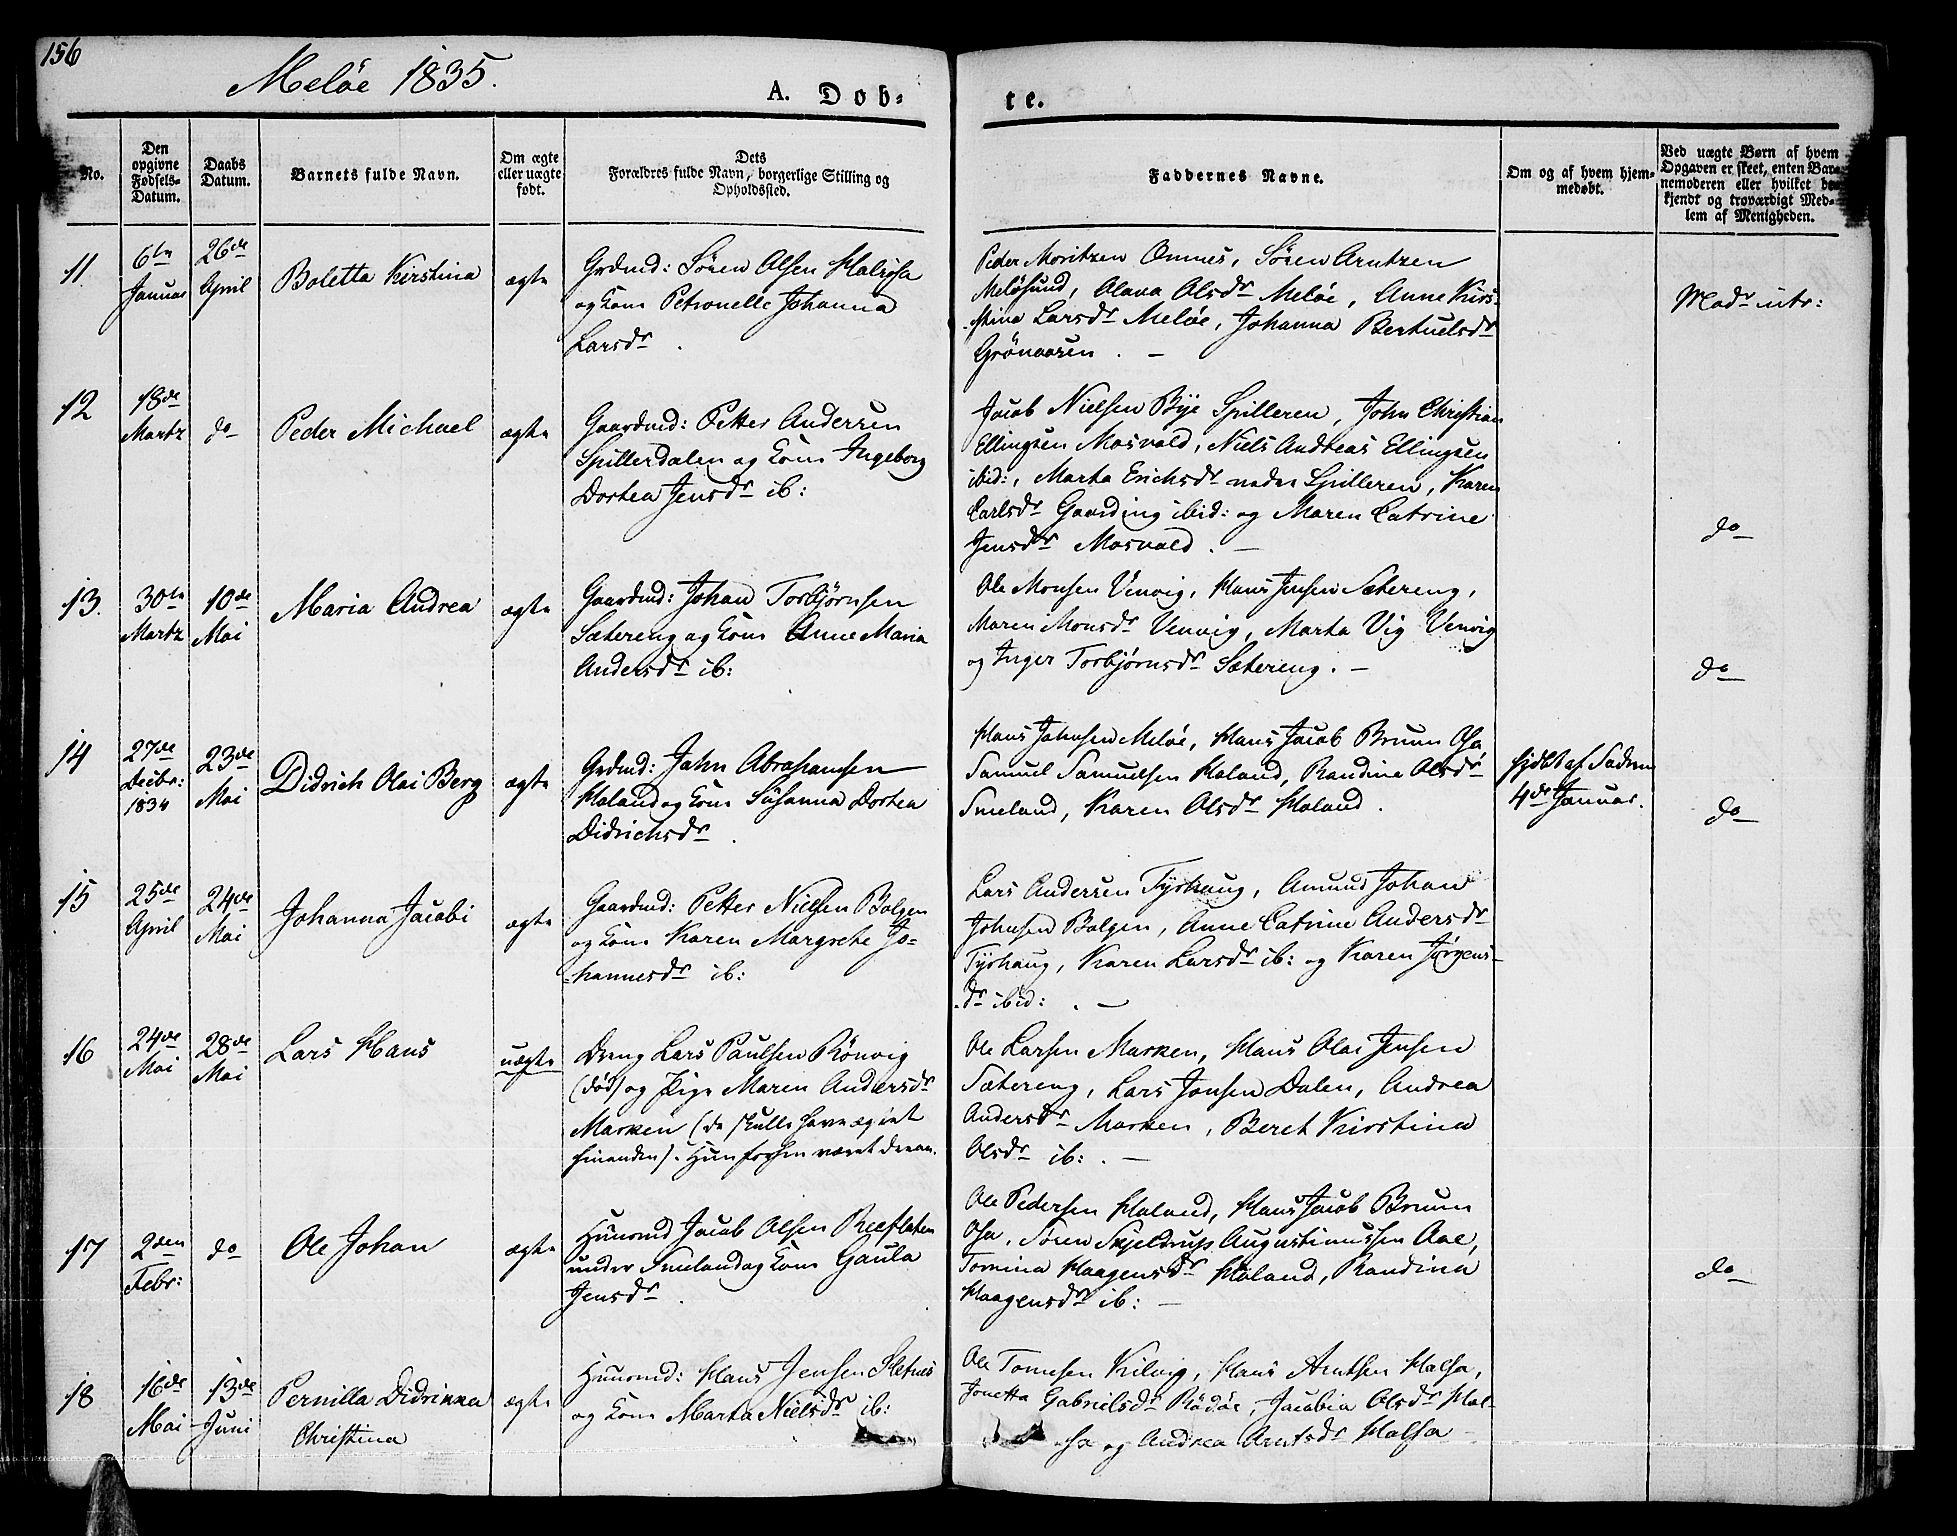 156
Meløe 1835.
A. Døb-
te.
No.
Den opgivne Fødsels-Datum.
Daabs Datum.
Barnets fulde Navn.
Om ægte eller uægte født.
Dets Forældres fulde Navn, borgerlige Stilling og Opholdssted.
Faddernes Navne.
Om og af hvem hjemmedøbt.
Ved uægte Børn af hvem Opgaven er skeet, enten Barnemoderen eller hvilket bekjendt og troværdigt Medlem af Menigheden.
11.
6te Januar
26de April
Boletta Kirstina
ægte
Grdmd: Søren Olsen Halsosa
og Kone Petronelle Johanna
Larsdr.
Peder Moritzen Ønnes, Søren Arntzen
Meløsund, Olava Olsdr Meløe, Anne Kir-
-stina Larsdr Meløe, Johanna Bertuelsdr
Grønaaren. –
Modr intr:
12
18de Martz
do
Peder Michael
ægte
Gaardmd: Petter Andersen
Spillerdalen og Kone Ingeborg
Dortea Jensdr ib:
Jacob Nielsen Bye Spilleren, John Christian
Ellingsen Mosvold, Niels Andreas Ellingsen
ibid:, Marta Erichsdr neder Spilleren, Karen
Carlsdr Gaarding ibid: og Maren Catrine
Jensdr Mosvold. –
do
13.
30te Martz
10de Mai
Maria Andrea
ægte
Gaardmd: Johan Torbjørnsen
Sætereng og Kone Anne Maria
Andersdr ib:
Ole Monsen Venvig, Hans Jensen Sætereng,
Maren Monsdr Venvig, Marta Vig Venvig
og Inger Torbjørnsdr Sætereng. –
do
14
27de Decbr: 1834
23de Mai
Didrich Olai Berg
ægte
Grdmd: John Abrahamsen
Haland og Kone Susanna Dortea
Didrichsdr.
Hans Johnsen Meløe, Hans Jacob Bruun Osa
Samuel Samuelsen Haland, Randine Olsdr
Smeland, Karen Olsdr Haland.
hjdbt af Fadren
4de Januar.
do
15
25de April
24de Mai
Johanna Jacobi
ægte
Gaardmd: Petter Nielsen Bolgen
og Kone Karen Margrete Jo-
-hannesdr ib:
Lars Andersen Tyrhaug, Amund Johan
Johnsen Bolgen, Anne Catrine Andersdr
Tyrhaug, Karen Larsdr ib: og Karen Jørgens-
dr ibid: . –
16
24de Mai
28de Mai
Lars Hans
uægte
Dreng Lars Paulsen Rønvig
(død) og Pige Maren Andersdr
Marken (de skulle have ægtet
hinanden).
Ole Larsen Marken, Hans Olai Jensen
Sætereng, Lars Jonsen Dalen, Andrea
Andersdr Marken, Beret Kirstina
Olsdr ib: . –
17
2den Febr:
do
Ole Johan
ægte
Huusmd Jacob Olsen Reeflaten
under Smeland og Kone Gaula
Jensdr.
Ole Pedersen Haland, Hans Jacob Bruun
Osa, Søren Skjeldrup Augustinussen Aae,
Tomina Haagensdr Haland, Randina
Haagensdr ib: –
do
18
16de Mai
13de Juni
Pernilla Didrikka
Christina
ægte
Huusmd: Hans Jensen Sletnes
og Kone Marta Nielsdr ib:
Ole Tomesen Kilvig, Hans Arntsen Halsa,
Jonetta Gabrielsdr Rødøe, Jacobia Olsdr Hal-
-sa og Andrea Arntsdr Halsa –